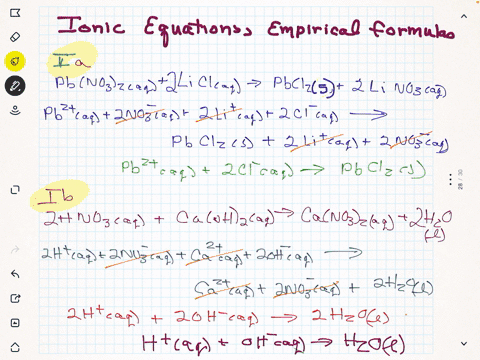 Ionic Equations, Empirical formulas
Ia
Pb(NO3)2(aq) + 2LiCl(aq) → PbCl2(s) + 2LiNO3(aq)
Pb2+(aq) + 2NO3-(aq) + 2Li+(aq) + 2Cl-(aq) →
PbCl2(s) + 2Li+(aq) + 2NO3-(aq)
Pb2+(aq) + 2Cl-(aq) → PbCl2(s)
Ib
2HNO3(aq) + Ca(OH)2(aq) → Ca(NO3)2(aq) + 2H2O(l)
2H+(aq) + 2NO3-(aq) + Ca2+(aq) + 2OH-(aq) →
Ca2+(aq) + 2NO3-(aq) + 2H2O(l)
2H+(aq) + 2OH-(aq) → 2H2O(l)
H+(aq) + OH-(aq) → H2O(l)
28 / 30